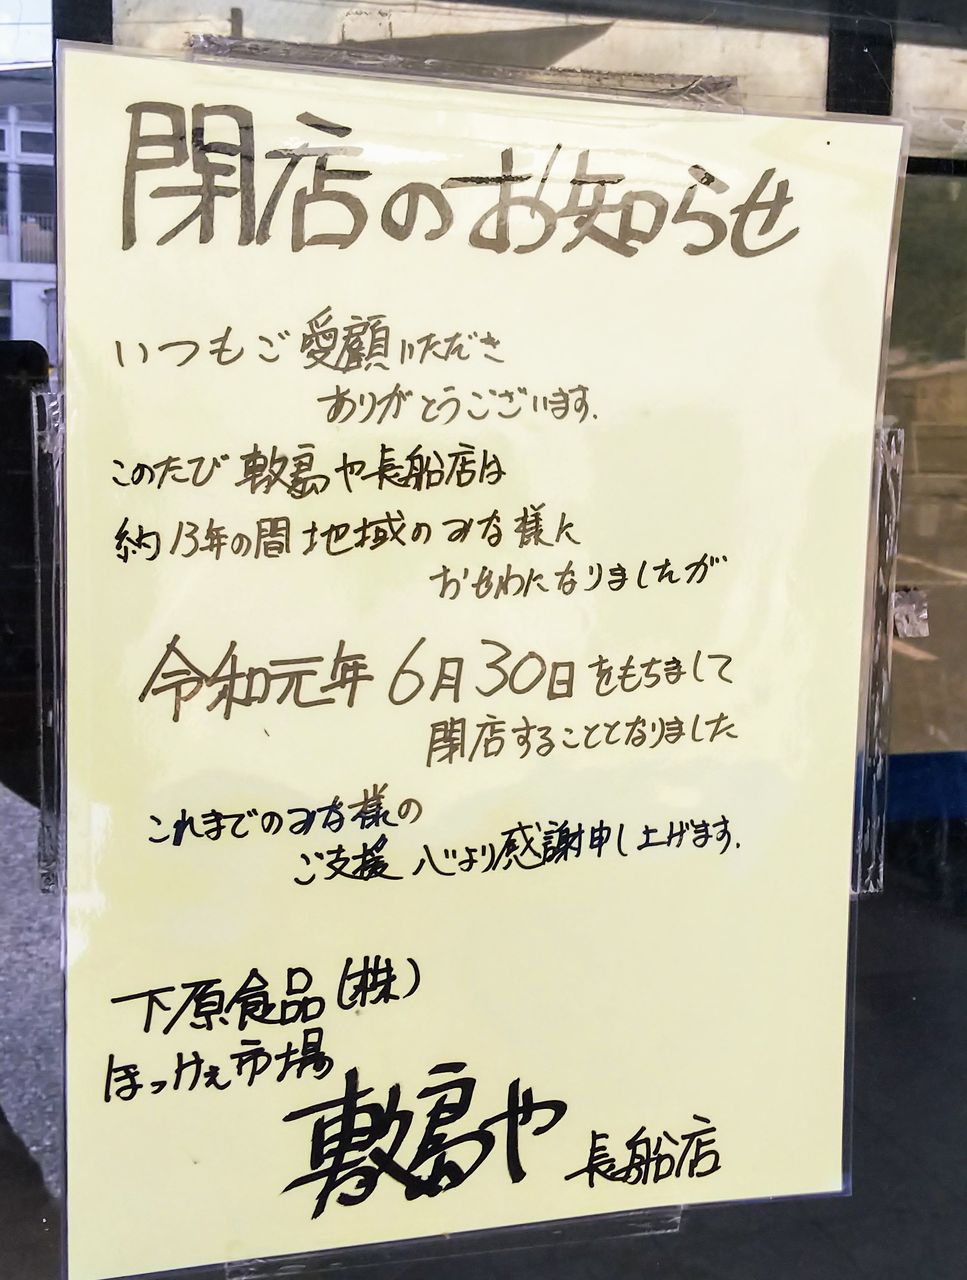 閉店のお知らせ
いつもご愛顧いただき
ありがとうございます.
このたび敷島や長船店は
約13年の間地域のみな様に
おせわになりましたが
令和元年6月30日をもちまして
閉店することとなりました
これまでのみな様の
ご支援 心より感謝申し上げます.
下原食品(株)
ほっけぇ市場
敷島や 長船店